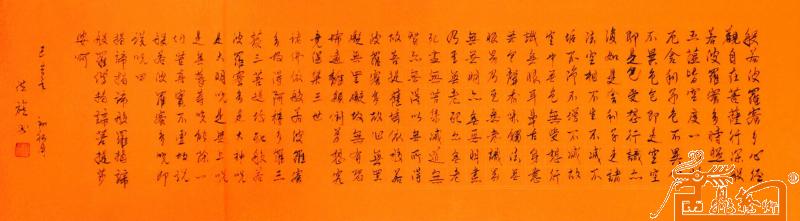 般若波羅蜜多心經
觀自在菩薩行深般
若波羅蜜多時照見
五蘊皆空度一切苦
厄舍利子色不異空
不異色色即是空空
即是色受想行識亦
復如是舍利子是諸
法空相不生不滅不
垢不淨不增不減故
空中無色無受想行
識無眼耳鼻舌身意
無色聲香味觸法無
眼界乃至無意識界
無無明亦無無明盡
乃至無老死亦無老
死盡無苦集滅道無
智亦無得以無所得
故菩提薩埵依般若
波羅蜜多故心無罣
礙無罣礙故無有恐
怖遠離顛倒夢想究
竟涅槃三世
諸佛依般若波羅蜜
多故得阿耨多羅三
藐三菩提故知般若
波羅蜜多是大神咒
是大明咒是無上咒
是無等等咒能除一
切苦真實不虛故說
般若波羅蜜多咒即
說咒曰
揭諦揭諦般羅揭諦
般羅僧揭諦菩提莎
婆訶